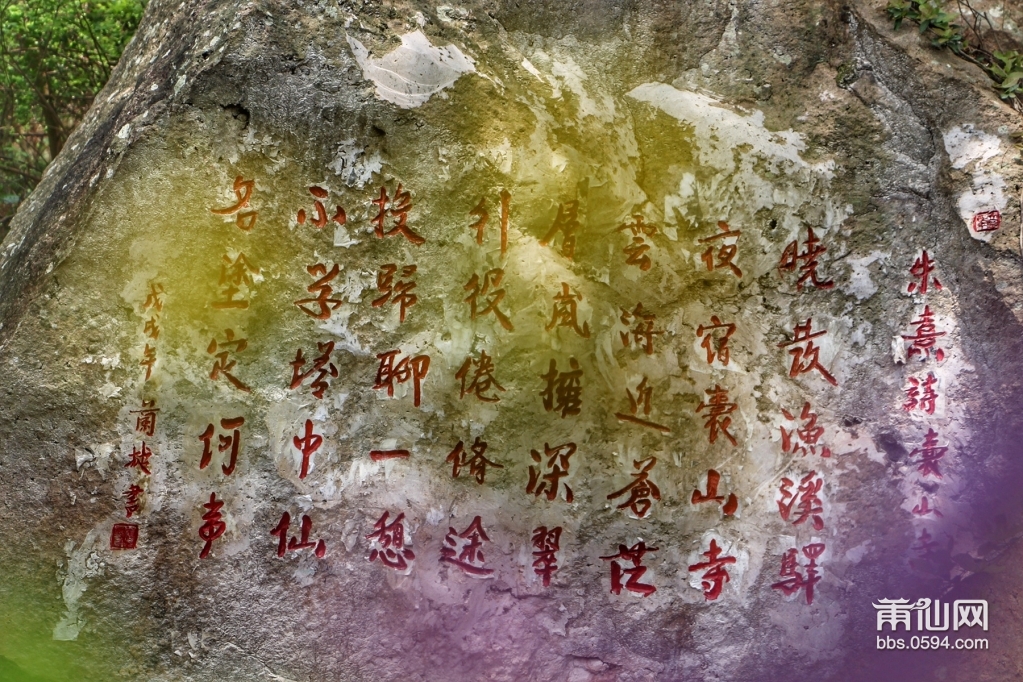 朱熹詩囊山寺
曉發漁溪驛
夜宿囊山寺
雲海近蒼茫
層嵐擁深翠
行役倦脩途
投歸聊一憩
不學塔中仙
名塗定何事
戊戌年 蘭坡書
莆仙网
bbs.0594.com